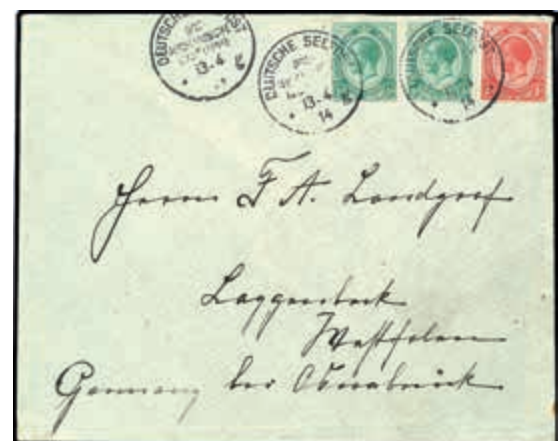 DEUTSCHE SEEPOST
13.4
DEUTSCHE SEEPOST
13.4
14
DEUTSCHE SEEPOST
14
Herrn F. A. Landgraf
Laggenbeck
Westfalen
Germany bei Osnabrück